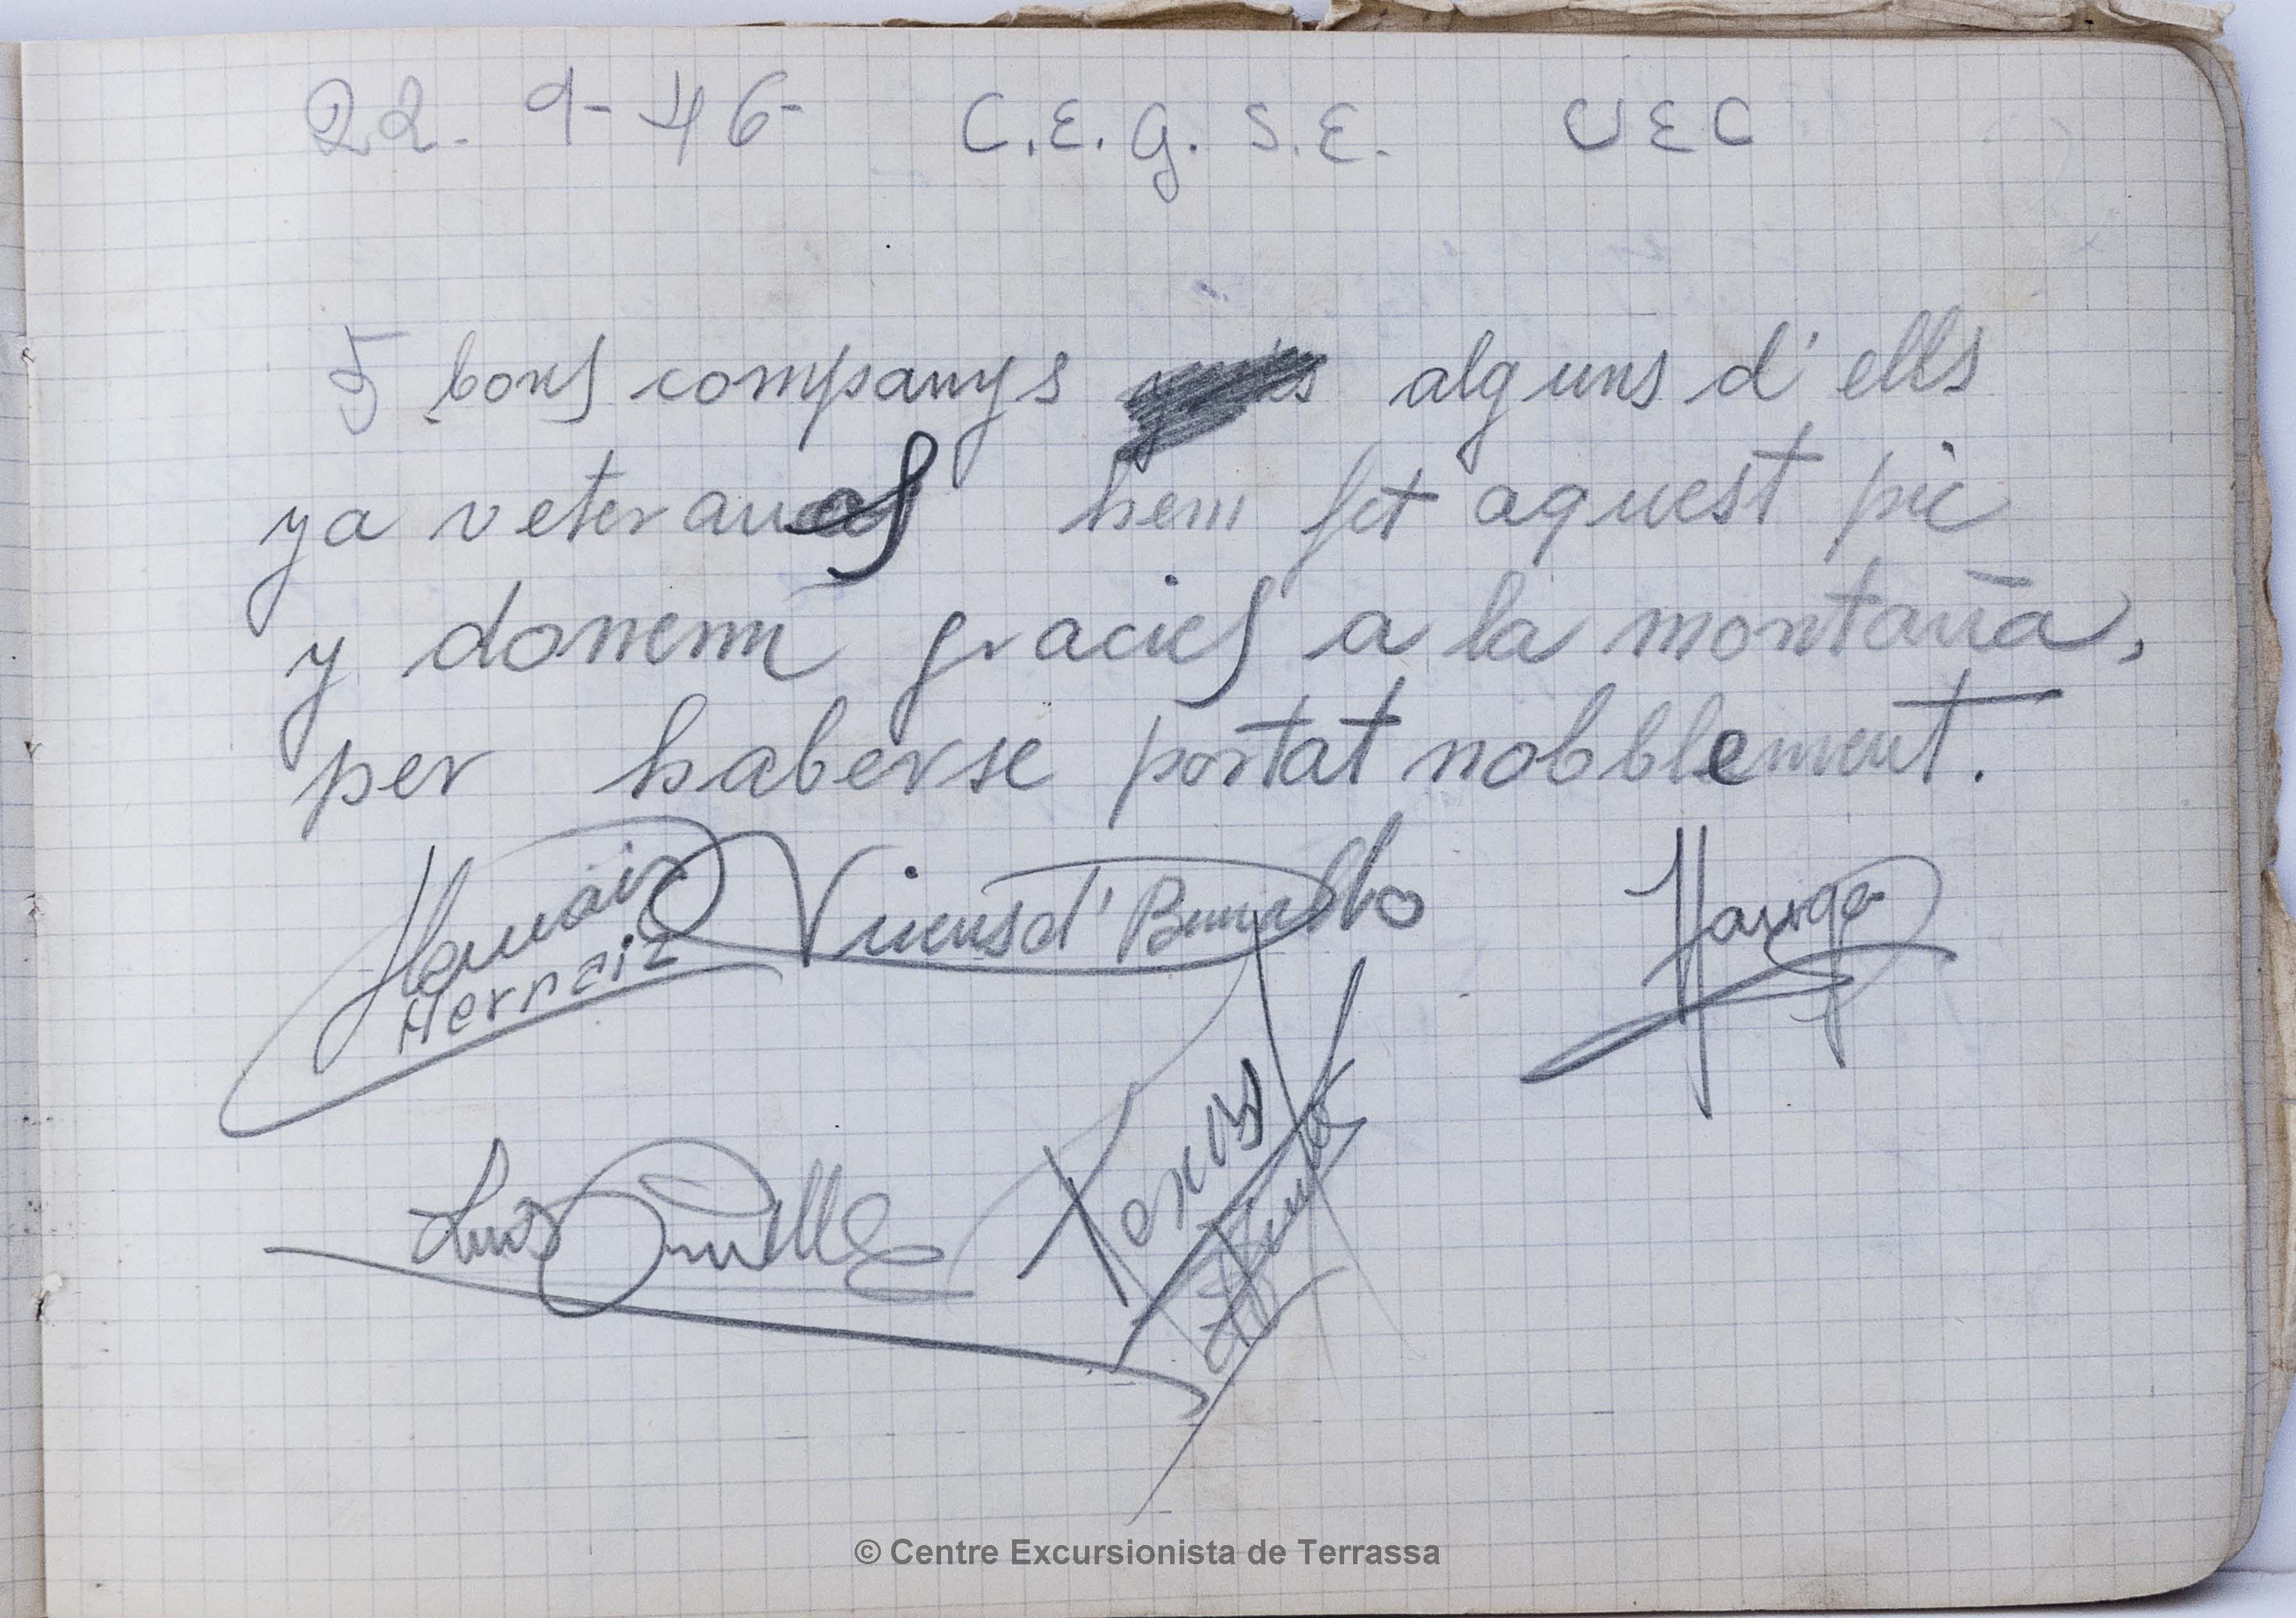 22. 9-46- C.E.G. S.E. UEC
5 bons companys alguns d'ells
ya veterans hem fet aquest pic
y donem gracies a la montaña,
per haberse portat nobblement.
Hernaiz
Luis
© Centre Excursionista de Terrassa